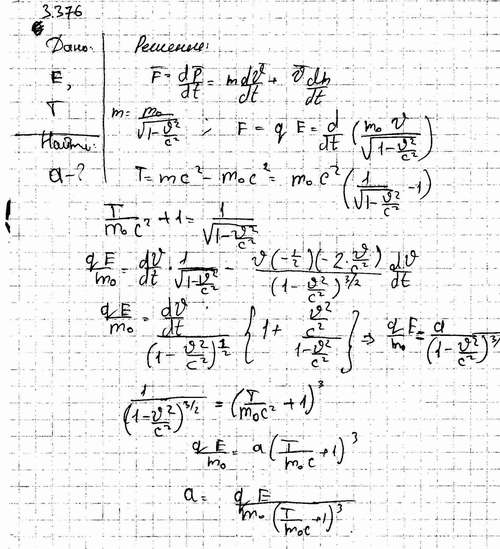 3.376
Дано: Решение:
E, F̅ = dp̅/dt = m dϑ̅/dt + ϑ̅ dm/dt
T m = m₀/√(1-ϑ²/c²) ; F = q E = d/dt (m₀ ϑ/√(1-ϑ²/c²))
Найти:
a-? T = mc² - m₀c² = m₀c² (1/√(1-ϑ²/c²) -1)
T/m₀c² + 1 = 1/√(1-ϑ²/c²)
qE/m₀ = dϑ/dt · 1/√(1-ϑ²/c²) - ϑ(-1/2)(-2·ϑ/c²)/(1-ϑ²/c²)^3/2 dϑ/dt
qE/m₀ = dϑ/dt/(1-ϑ²/c²)^1/2 {1 + ϑ²/c²/1-ϑ²/c²} ⇒ qE/m₀ = a/(1-ϑ²/c²)^3/2
1/(1-ϑ²/c²)^3/2 = (T/m₀c² + 1)³
qE/m₀ = a (T/m₀c +1)³
a = qE/m₀ (T/m₀c +1)³